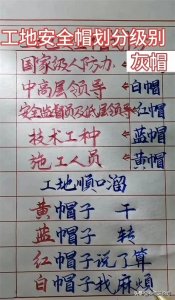 工地安全帽划分级别
灰帽
国家级人防力
中高层领导 白帽
安全监督员及低层领导 红帽
技术工种 蓝帽
施工人员 黄帽
工地顺口溜
黄帽子 干
蓝帽子 转
红帽子说了算
白帽子找麻烦